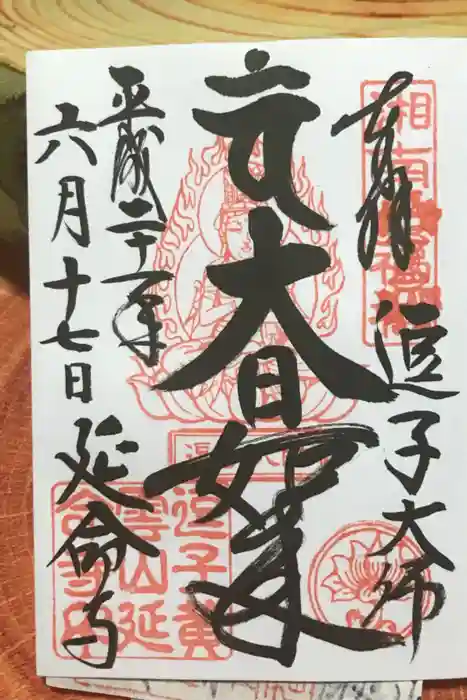 奉拝 逗子大師
大日如来
平成二十一年
六月十七日 延命寺
逗子黄
雲山延
命寺印